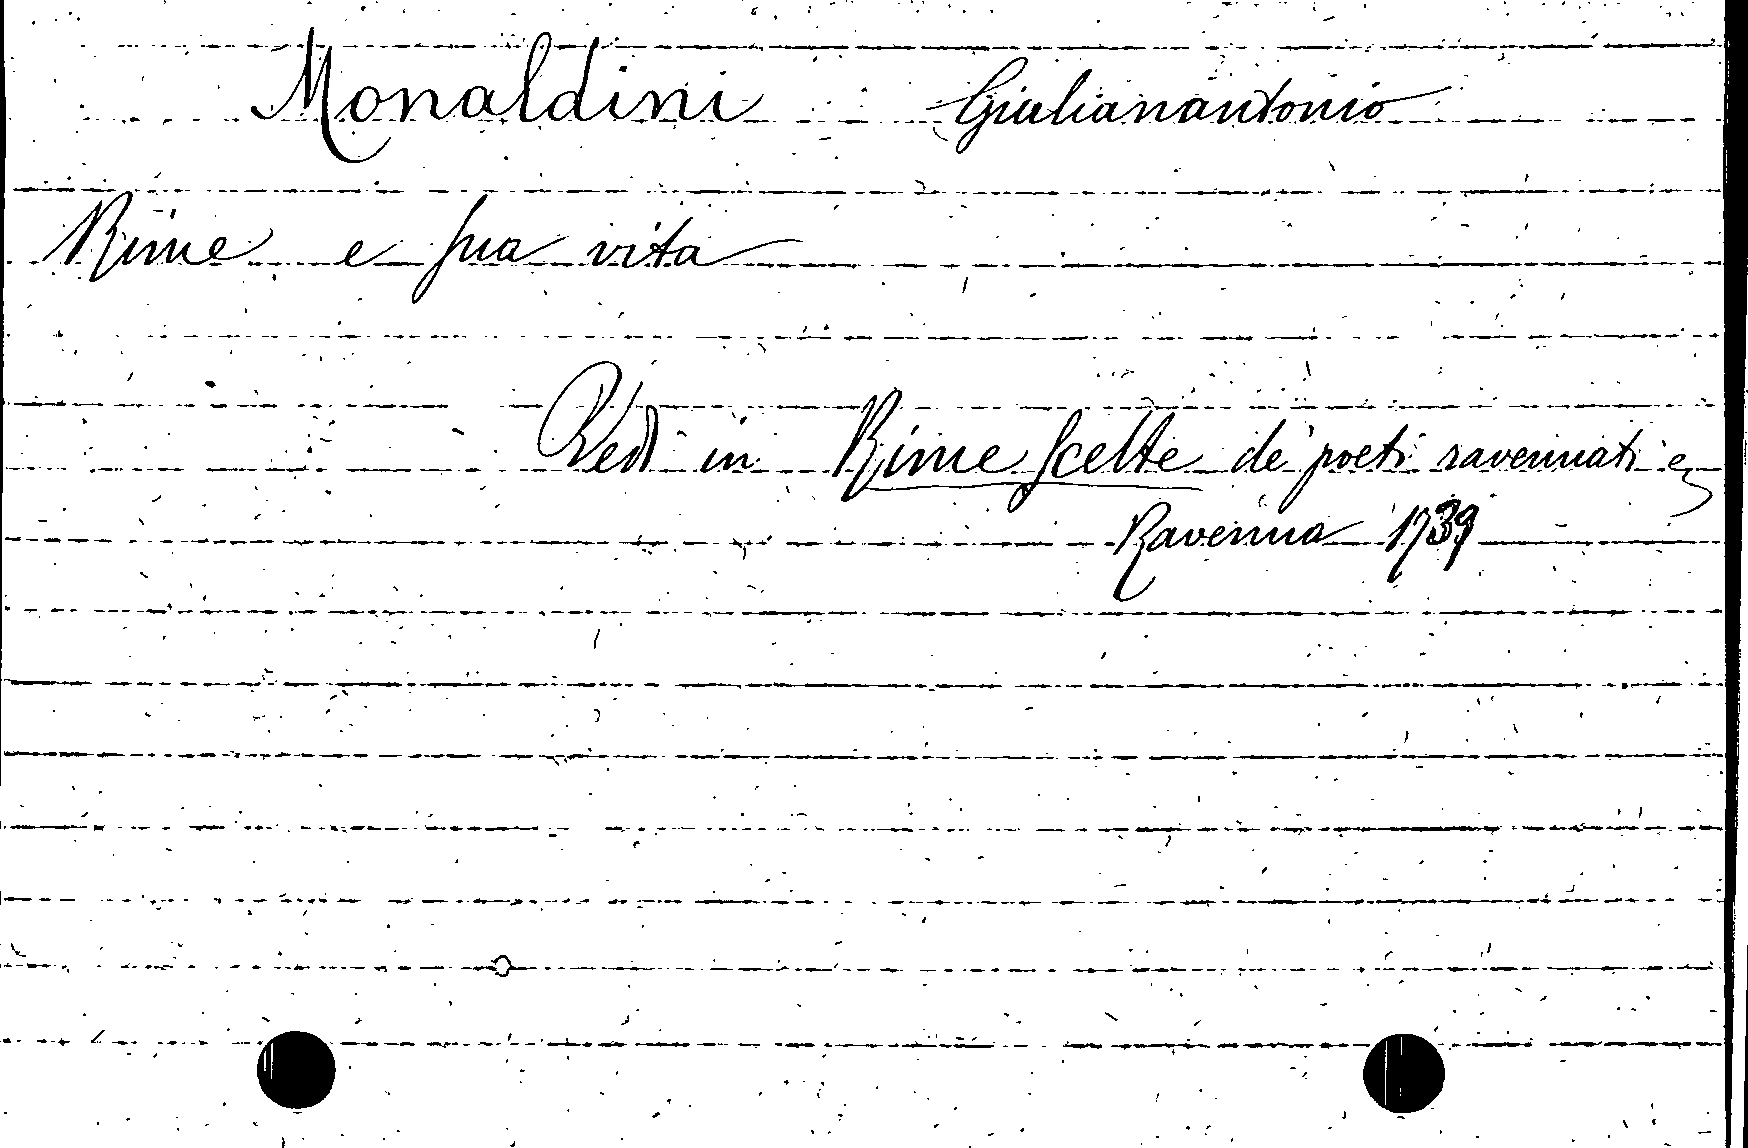 Monaldini Giulianantonio
Rime e sua vita
Vedi in Rime scelte de' poeti ravennati &
Ravenna 1739